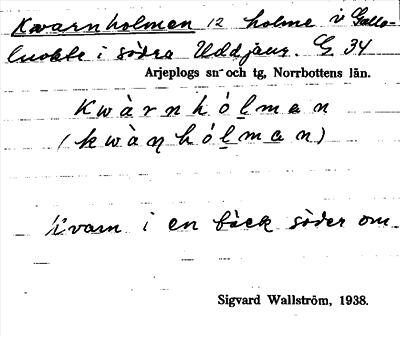 Kvarnholmen 12 holme i Gallo-
luokte i södra Uddjaur. G 34
Arjeplogs sn och tg, Norrbottens län.
kwàrnhólmen
(kwàṇhólmen)
Kvarn i en bäck söder om
Sigvard Wallström, 1938.